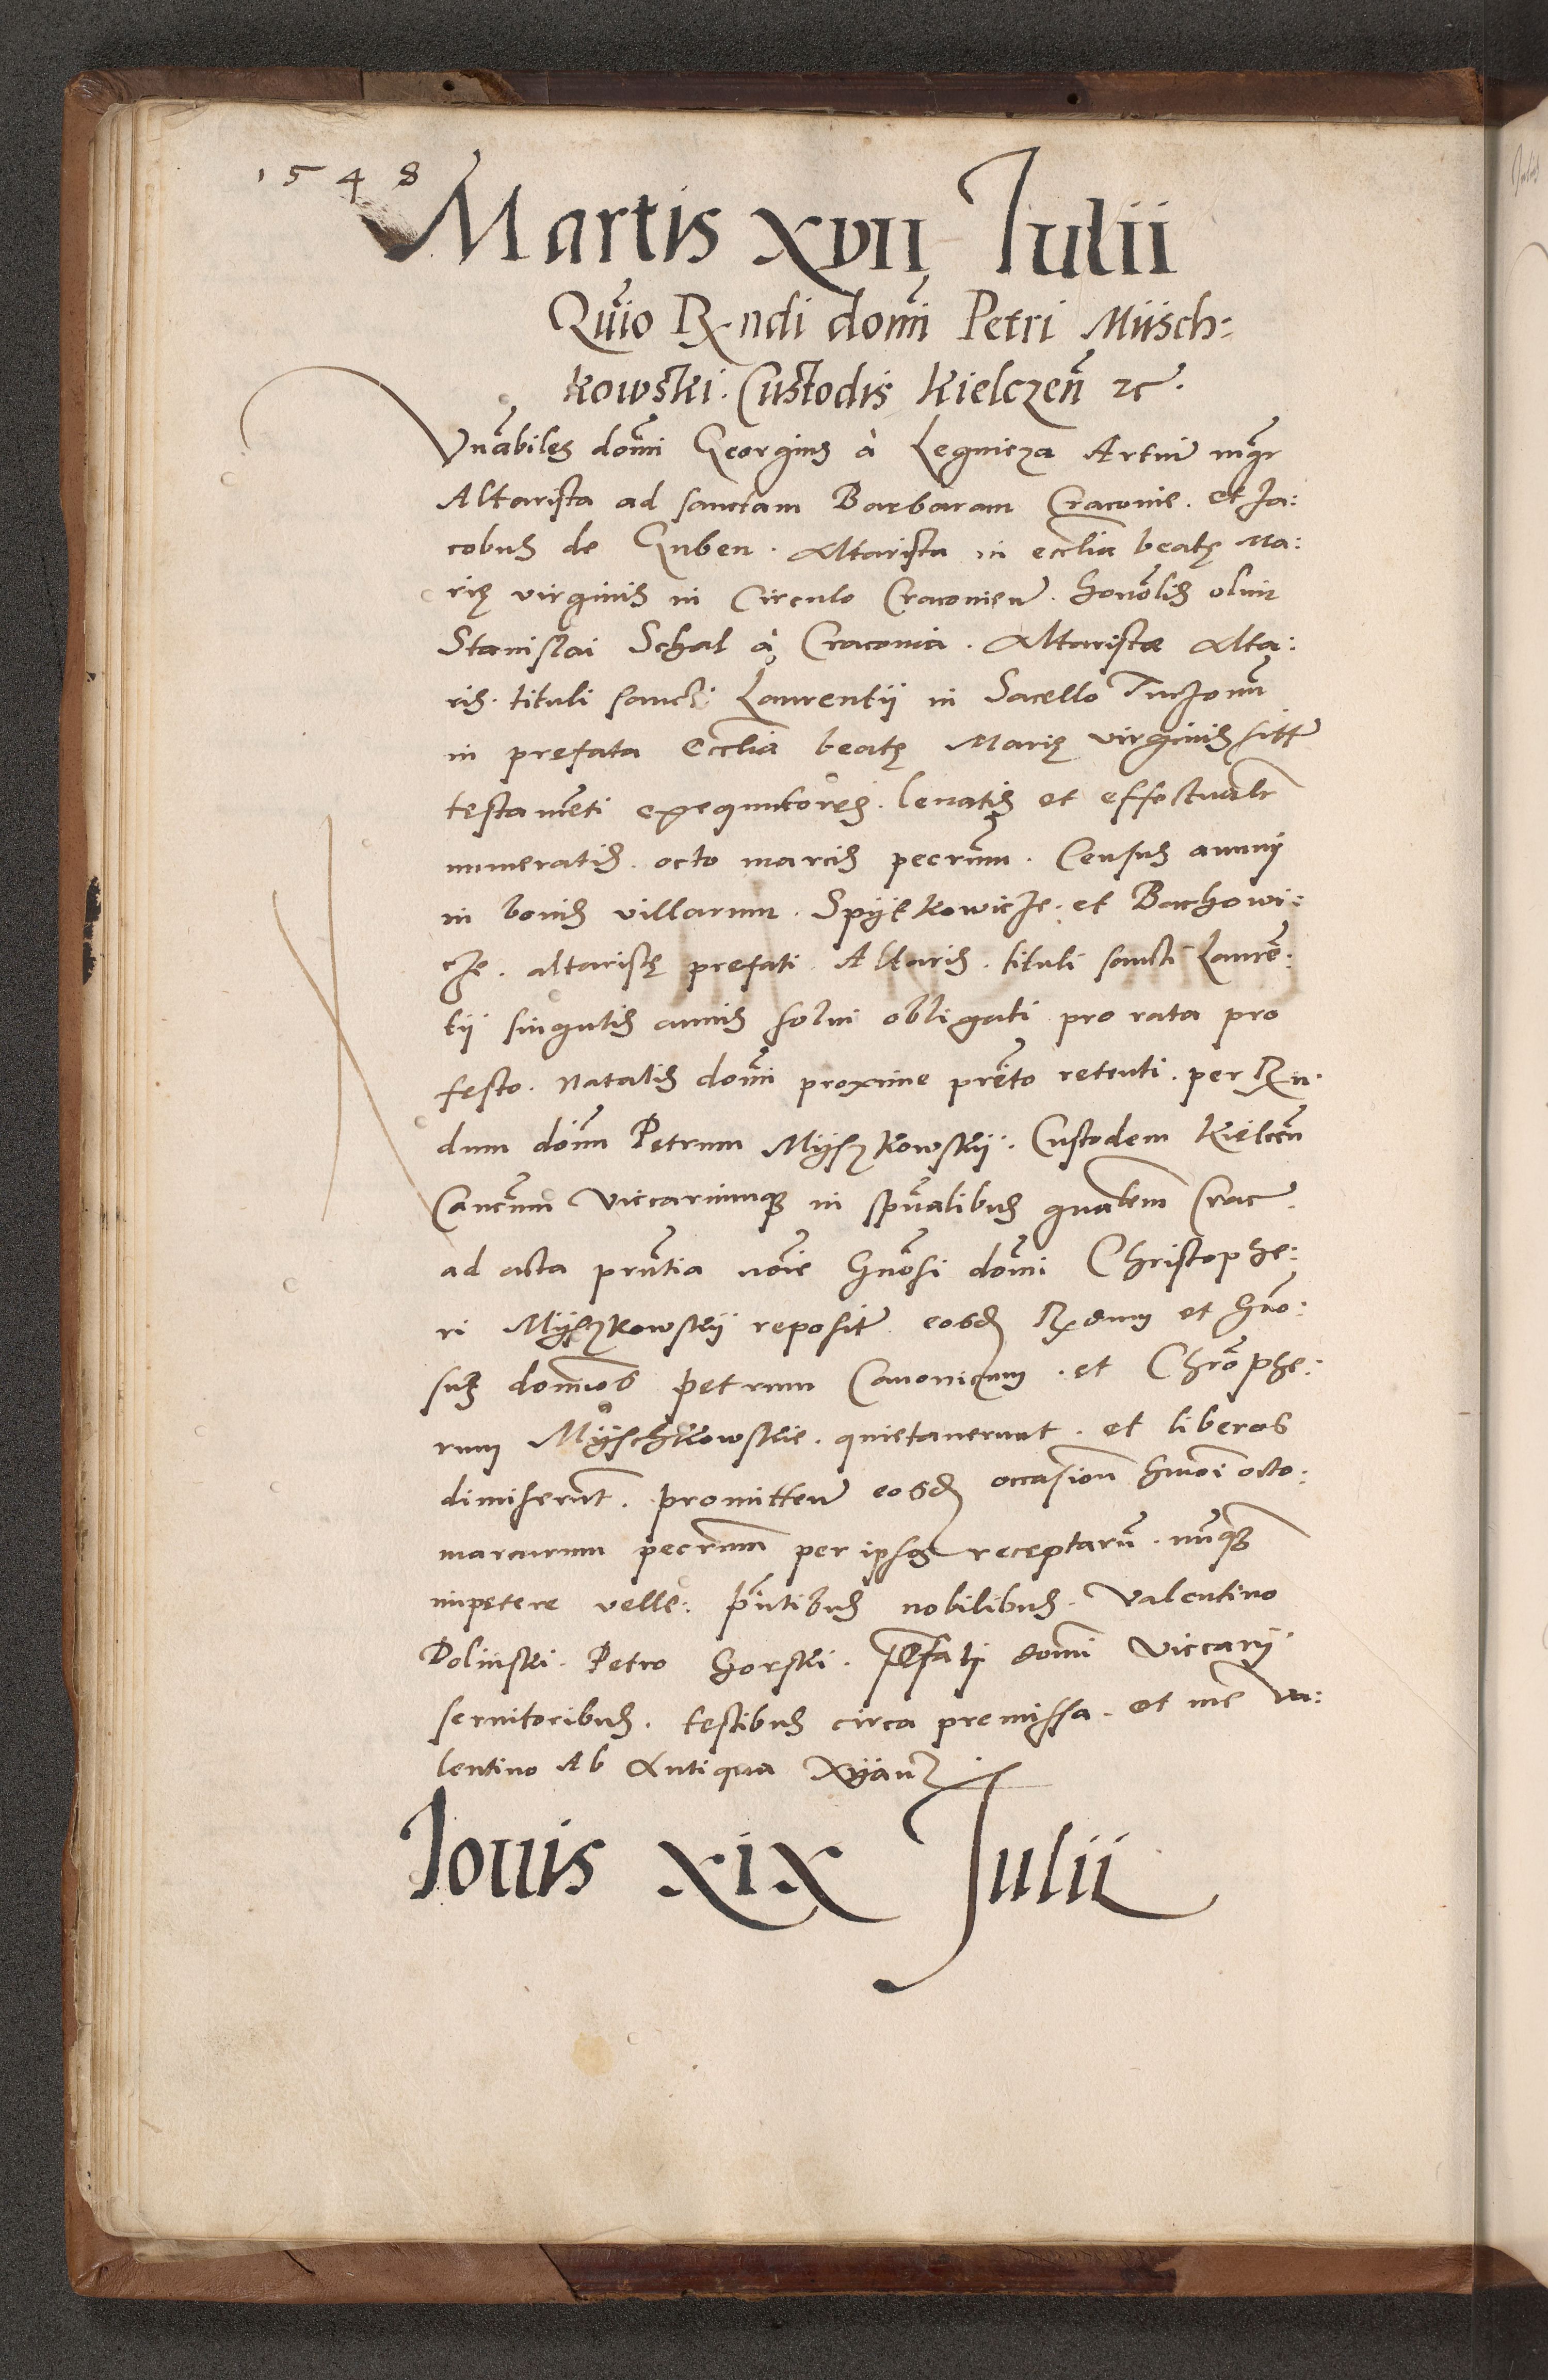 1548
Martis XVII Julii
Qũio Rx̃ndi dom̃i Petri Miisch:
kowski. Custodis Kielczeñ etc.
Vnãbiles dom̃i Georgius à Legnicza Artiũ mg̃r
Altarista ad sanctam Barbaram Cracovie. et Ja:
cobus de Guben. Altarista in eccl̃ia beatę Ma:
rię virginis in Circulo Cracovieñ. honor̃lis olim
Stanislai Schal à Cracovia. Altaristæ Alta:
ris. tituli sancti Laurentii in Sacello
in prefata Eccl̃ia beatę Marię virginis sitt̃
testam̃eti exequutores. levatis et effectual̃r
numeratis. octo marcis pecuñm. Census annuj
in bonis villarum. Spÿtkowicze. et Bachowi:
cze. altaristę prefati. Altaris. tituli sancti Laurẽ:
tij singulis annis solvi obligati pro rata pro
festo. Natalis dom̃i proxime pret̃o retenti. per Rx̃n
dum dom̃ Petrum Mÿszkowskij. Custodem Kielceñ
Cancm̃ Viccariumque in spũalibus gñalem Crac̃.
ad acta pñtia noĩe Gñosi dom̃i Christophe:
ri Mÿszkowskij reposit̃ eosd̃ Rx̃dum et Gño:
sus domĩos Petrum Canonicum. et Chrõphe:
rum Mÿschkowskie. quietaverunt. et liberos
dimiserũt. promitteñ eosd̃ occasioñ hmõi octo:
marcarum pecuñm per ipsos receptarũ. nunq̃
impetere velle. Pñtibus nobilibus. Valentino
Dolinski. Petro Gorski. prefatj dom̃i Viccarij
servitoribus. testibus circa premissa. et me Va:
lentino Ab Antiqua
Jovis XIX Julii